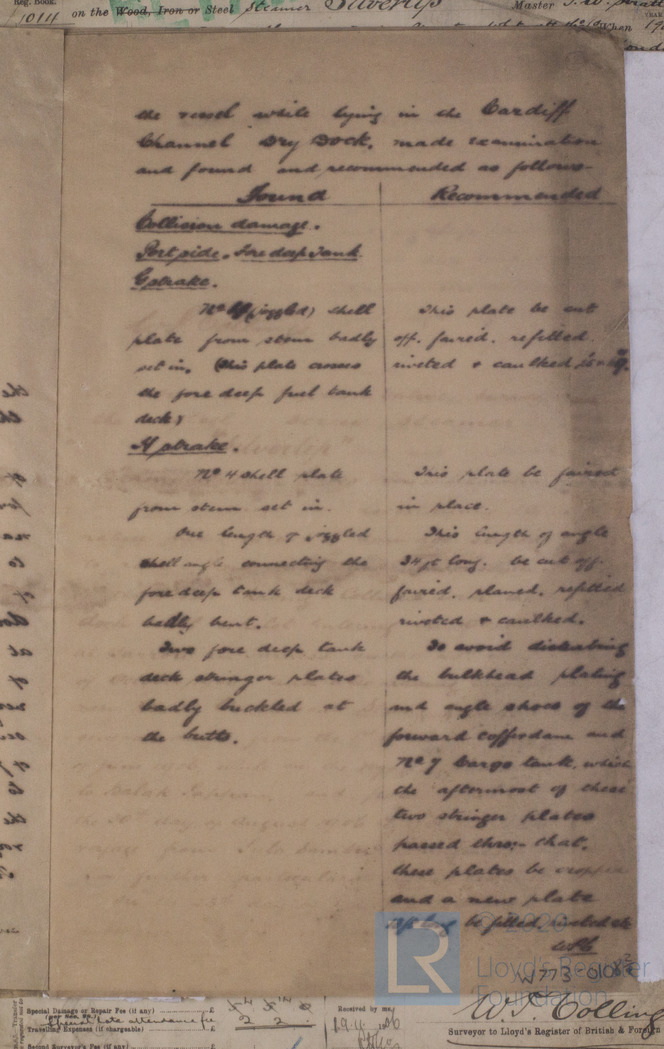 Reg. Book.
1014 on the Wood, Iron or Steel Steamer Silverlip Master
When
the vessel while lying in the Cardiff
Channel Dry Dock, made examination
and found and recommended as follows
Found
Collision damage.
Port side. Fore deep Tank
G strake.
(joggled) shell
plate from stem badly
set in. (this plate crosses
the fore deep fuel tank
deck)
H strake.
No 4 shell plate
from stem set in.
One length of joggled
shell angle connecting the
fore deep tank deck
badly bent.
Two fore deep tank
deck stringer plates
badly buckled at
the butts.
Recommended
This plate be cut
off. faired. refitted.
riveted & caulked,
This plate be faired
in place.
This length of angle
34 ft long. be cut off.
faired. planed. refitted
riveted & caulked.
To avoid disturbing
the bulkhead plating
and angle shoes of the
forward cofferdam and
No 7 Cargo tank, which
the aftermost of these
two stringer plates
passed thro:- that,
these plates be cropped
and a new plate
be fitted,
© 2020
Lloyd's Register
Foundation
W773 0108
Special Damage or Repair Fee (if any) £
Travelling Expenses (if chargeable) £
Second Surveyor's Fee (if any)
2 2
Received by me,
W. S. Colling
Surveyor to Lloyd's Register of British & Foreign